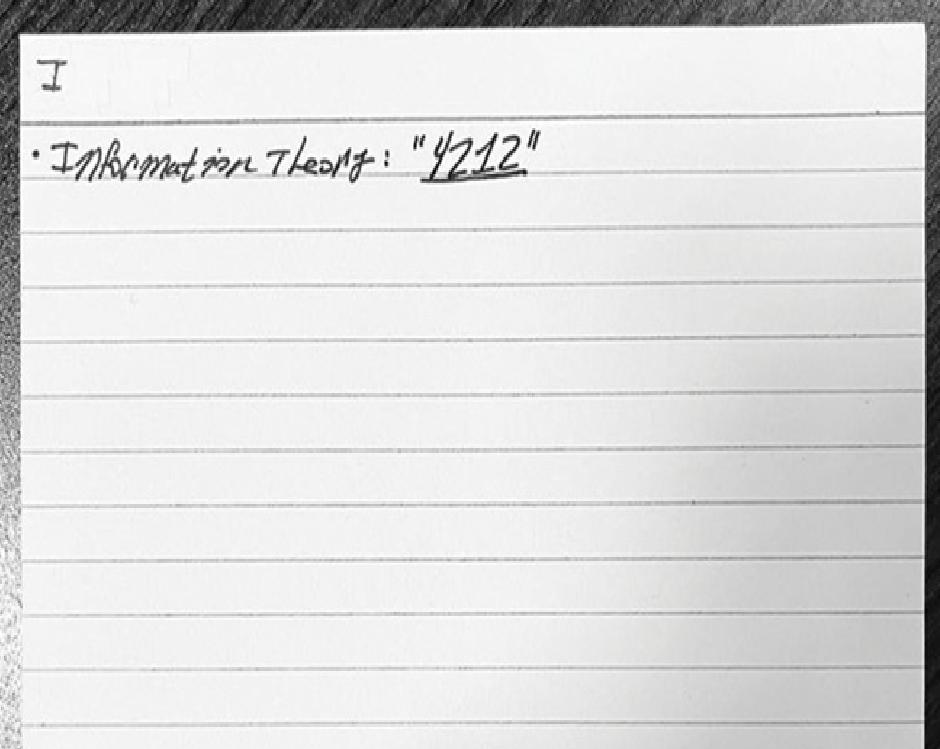 I
· Information Theory: "4212"